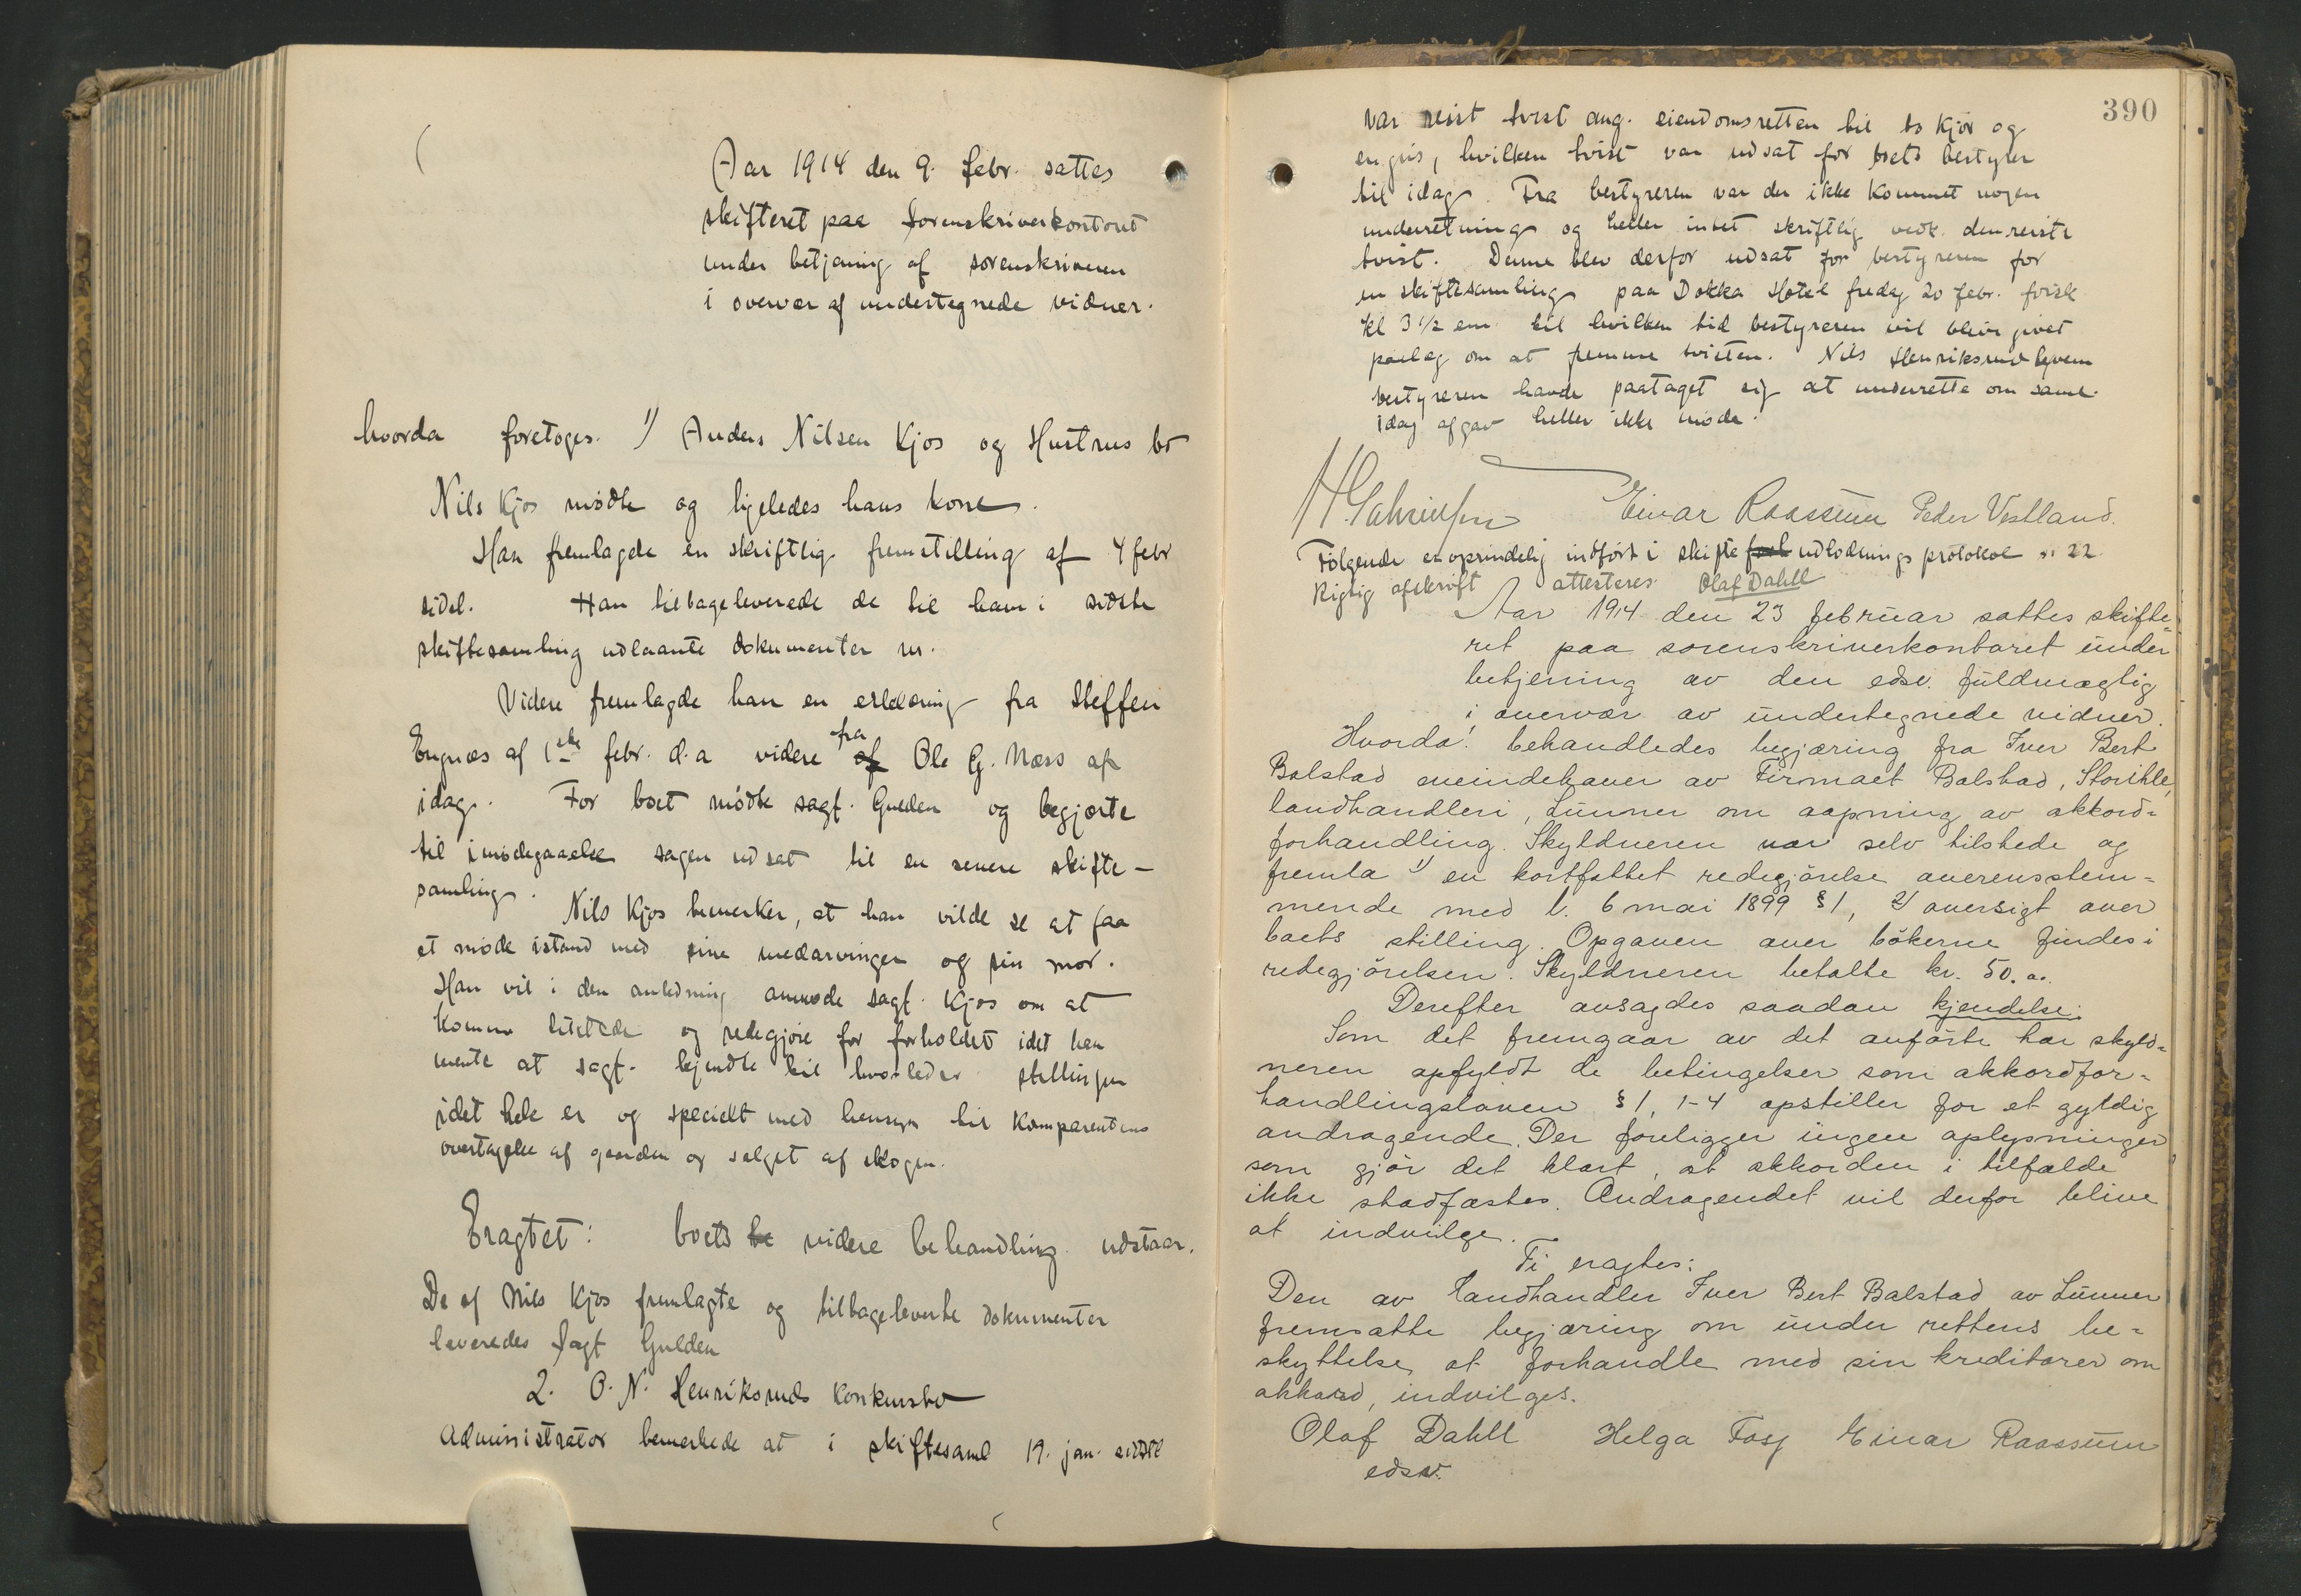 Aar 1914 den 9. febr. sattes
skifteret paa sorenskriverkontoret
under betjening af sorenskriveren
i overvær af undertegnede vidner.
hvorda foretoges. 1) Anders Nilsen Kjos og Hustrus bo
Nils Kjos mødte og ligeledes hans kone.
Han fremlagde en skriftlig fremstilling af 4 febr
sidstl. Han tilbageleverede de til ham i sidste
skiftesamling udlaante dokumenter
Videre fremlagde han en erklæring fra Steffen
Engnæs af 1ste febr. d.a videre fra af Ole G. Næss af
idag. For boet mødte sagf. Gulden og begjærte
til imødegaaelse sagen udsat til en senere skifte-
samling. Nils Kjos bemerker, at han vilde se at faa
et møde istand med sine medarvinger og sin mor.
Han vil i den anledning anmode sagf. Kjos om at
komme tilstede og redegjøre for forholdet idet han
mente at sagf. kjendte til hvorledes stillingen
idet hele er og specielt med hensyn til komparentens
overtagelse af gaarden og salget af skogen.
Eragtet: boets be videre behandling udstaar.
De af Nils Kjos fremlagte og tilbageleverte dokumenter
leveredes sagf Gulden
2. O. N. Henriksruds konkursbo
Administrator bemerkede at i skiftesaml 19. jan. sidstl
390
var reist tvist ang. eiendomsretten til to kjør og
en gris, hvilken tvist var udsat for boets bestyrer
til idag. Fra bestyreren var der ikke kommet nogen
underretning og heller intet skriftlig vedk. den reiste
tvist. Denne blev derfor udsat for bestyreren for
en skiftesamling paa Dokka Hotel fredag 20 febr. førstk
kl 3 1/2 em til hvilken tid bestyreren vil blive givet
paalæg om at fremme tvisten. Nils Henriksrud hvem
bestyreren havde paataget sig at underrette om saml.
idag afgav heller ikke møde.
Einar Raassum Peder Vestland.
Følgende er oprindelig indført i skifte forh udlodnings protokol n. 22
Rigtig afskrift attesteres Olaf Dahll
Aar 1914 den 23 februar sattes skifte=
ret paa sorenskriverkontoret under
betjening av den edsv. fuldmægtig
i overvær av undertegnede vidner.
Hvorda! behandledes begjæring fra Iver Bert
Balstad eneindehaver av Firmaet Balstad, Storihle,
landhandleri, Lunner om aapning av akkord=
forhandling. Skyldneren var selv tilstede og
fremla 1) en kortfattet redegjörelse overensstem=
mende med l. 6 mai 1899 § 1, 2) oversigt over
boets stilling. Opgaven over bökerne findes i
redegjörelsen. Skyldneren betalte kr. 50.00.
Derefter avsagdes saadan kjendelse:
Som det fremgaar av det anförte har skyld=
neren opfyldt de betingelser som akkordfor=
handlingsloven § 1, 1-4 opstiller for et gyldig
andragende. Der foreligger ingen oplysninger
som gjör det klart, at akkorden i tilfælde
ikke stadfæstes. Andragendet vil derfor blive
at indvilge.
Ti eragtes:
Den av Landhandler Iver Bert Balstad av Lunner
fremsatte begjæring om under rettens be=
skyttelse at forhandle med sin kreditorer om
akkord, indvilges.
Olaf Dahll Helga Fosj Einar Raassum
edsv.